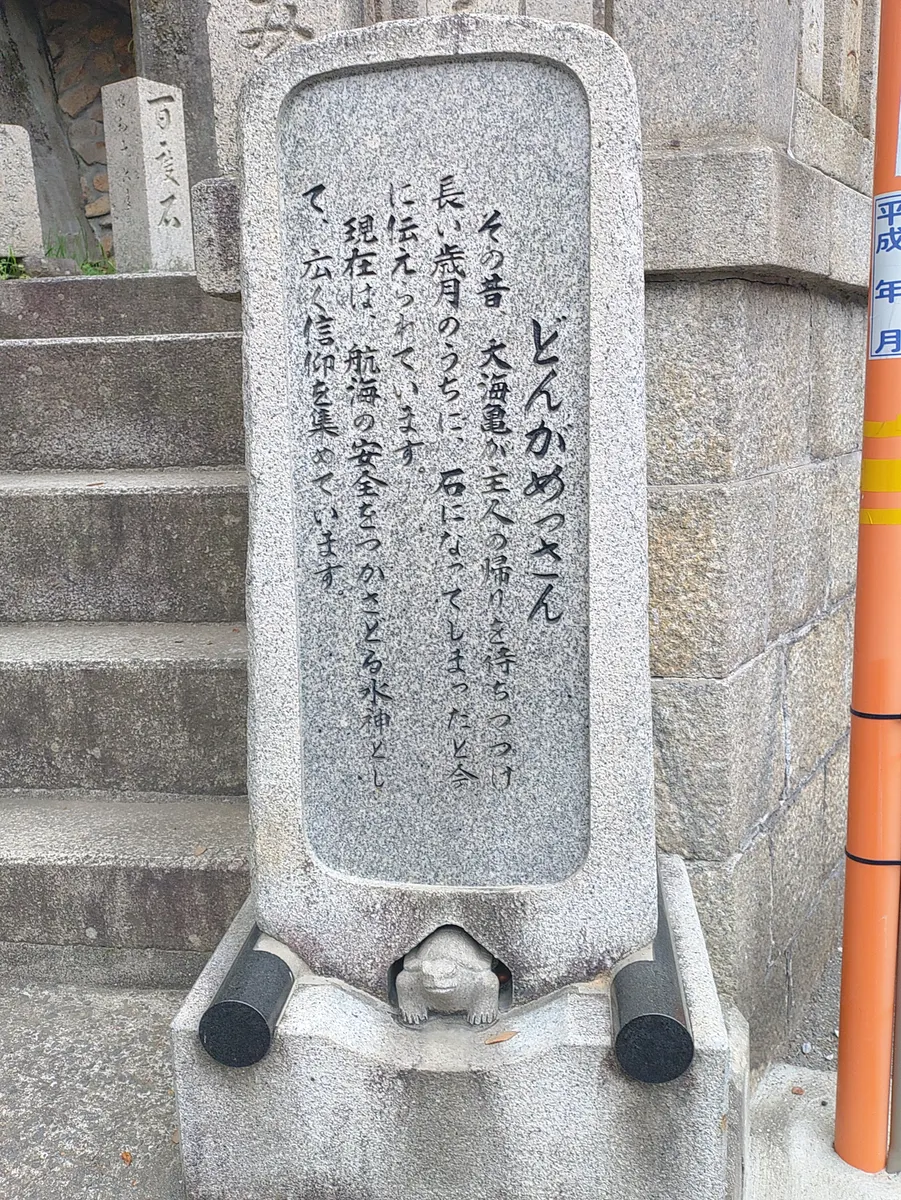 どんがめっさん
その昔、大海亀が主人の帰りを待ちつづけ
長い歳月のうちに、石になってしまったと今
に伝えられています。
現在は、航海の安全をつかさどる水神とし
て、広く信仰を集めています。
百度石
平成 年 月